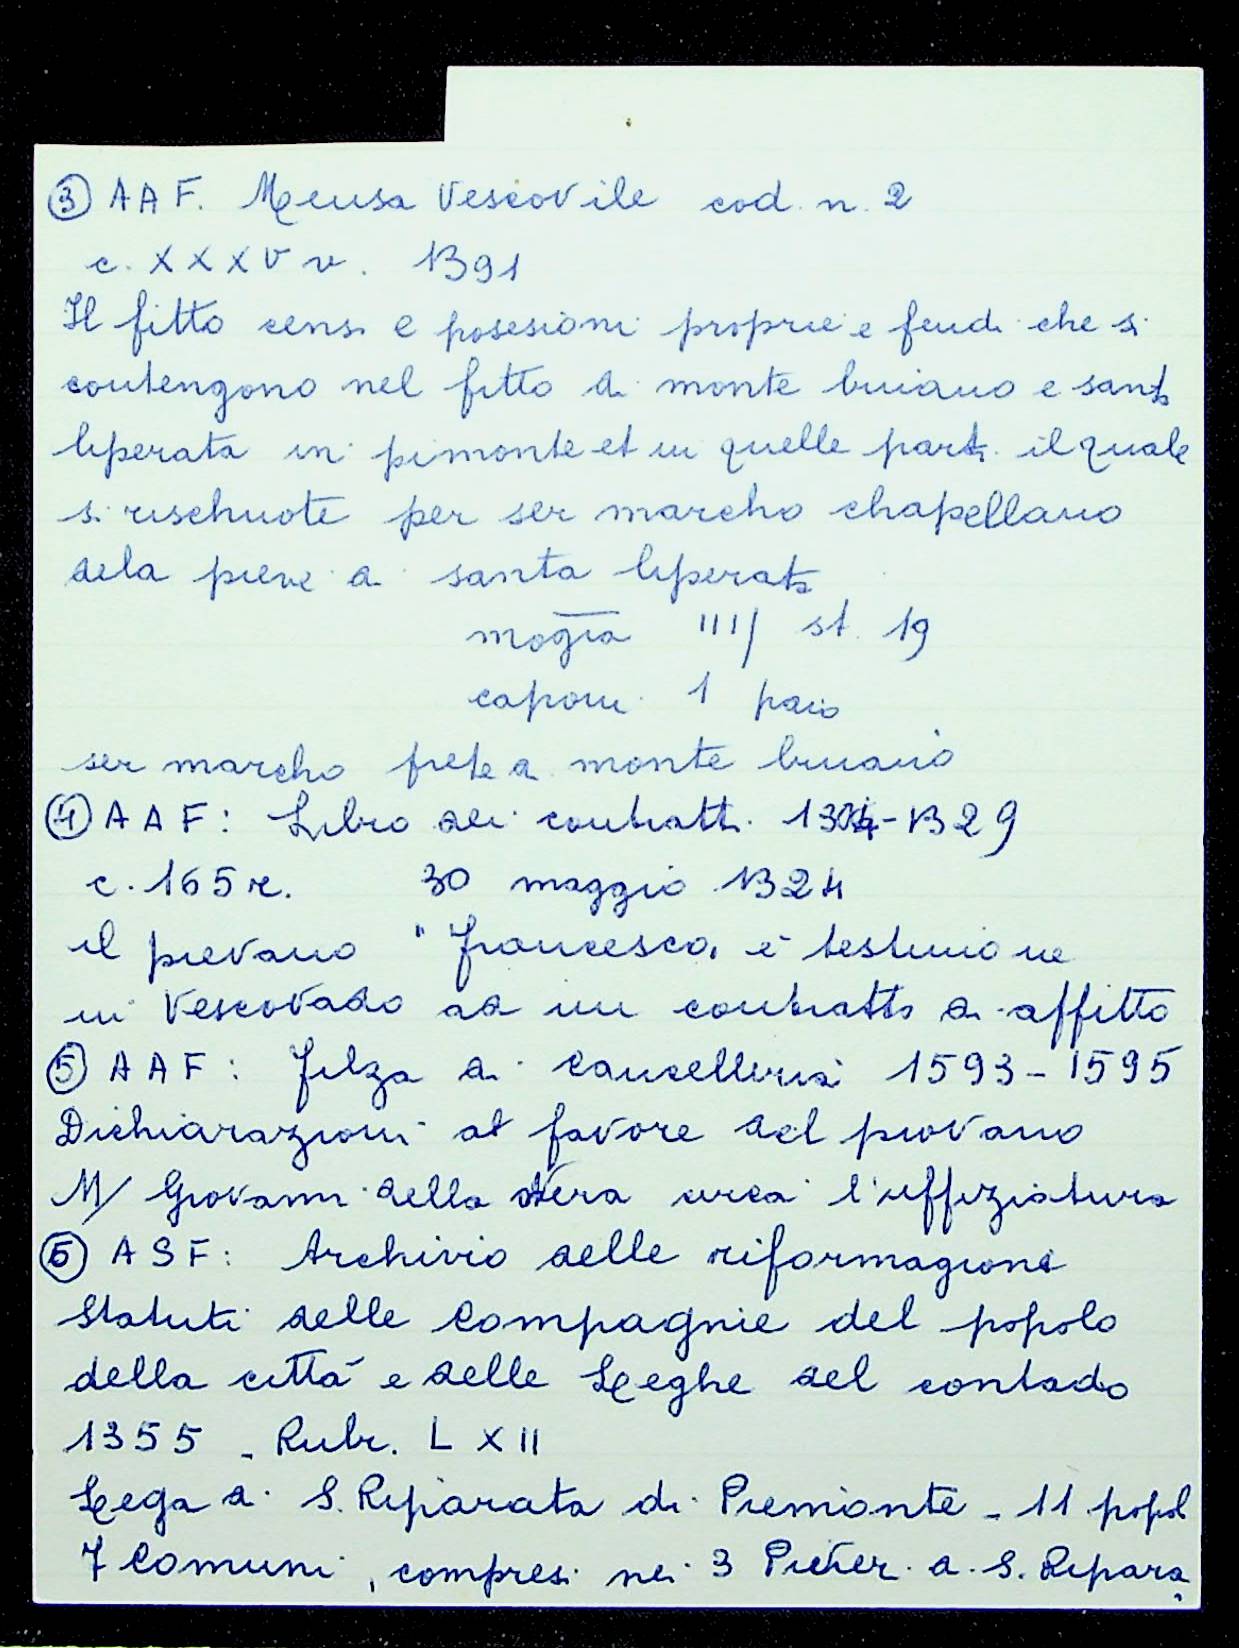 ③ AAF. Mensa Vescovile cod. n. 2
c. XXXV v. 1391
Il fitto censi e posesioni proprie e feudi che si
contengono nel fitto di monte buiano e santa
liperata in pimonte et in quelle parti il quale
si rischuote per ser marcho chapellano
dela pieve di santa liperata
mogia IIII/ st. 19
caponi 1 paio
ser marcho prete a monte buiano
④ AAF: Libro dei contratti 1304-1329
c. 165 r. 30 maggio 1324
il pievano "francesco, è testimone
in Vescovado ad un contratto di affitto
⑤ AAF: Filza di Cancelleria 1593-1595
Dichiarazioni at favore del piovano
M/ Giovanni della Vera circa l'uffiziatura
⑥ ASF: Archivio delle riformagioni
Statuti delle Compagnie del popolo
della città e delle Leghe del contado
1355 - Rubr. L X II
Lega di S. Riparata di Piemonte - 11 popol
7 Comuni, compresi nei 3 Pivieri di S. Ripara,